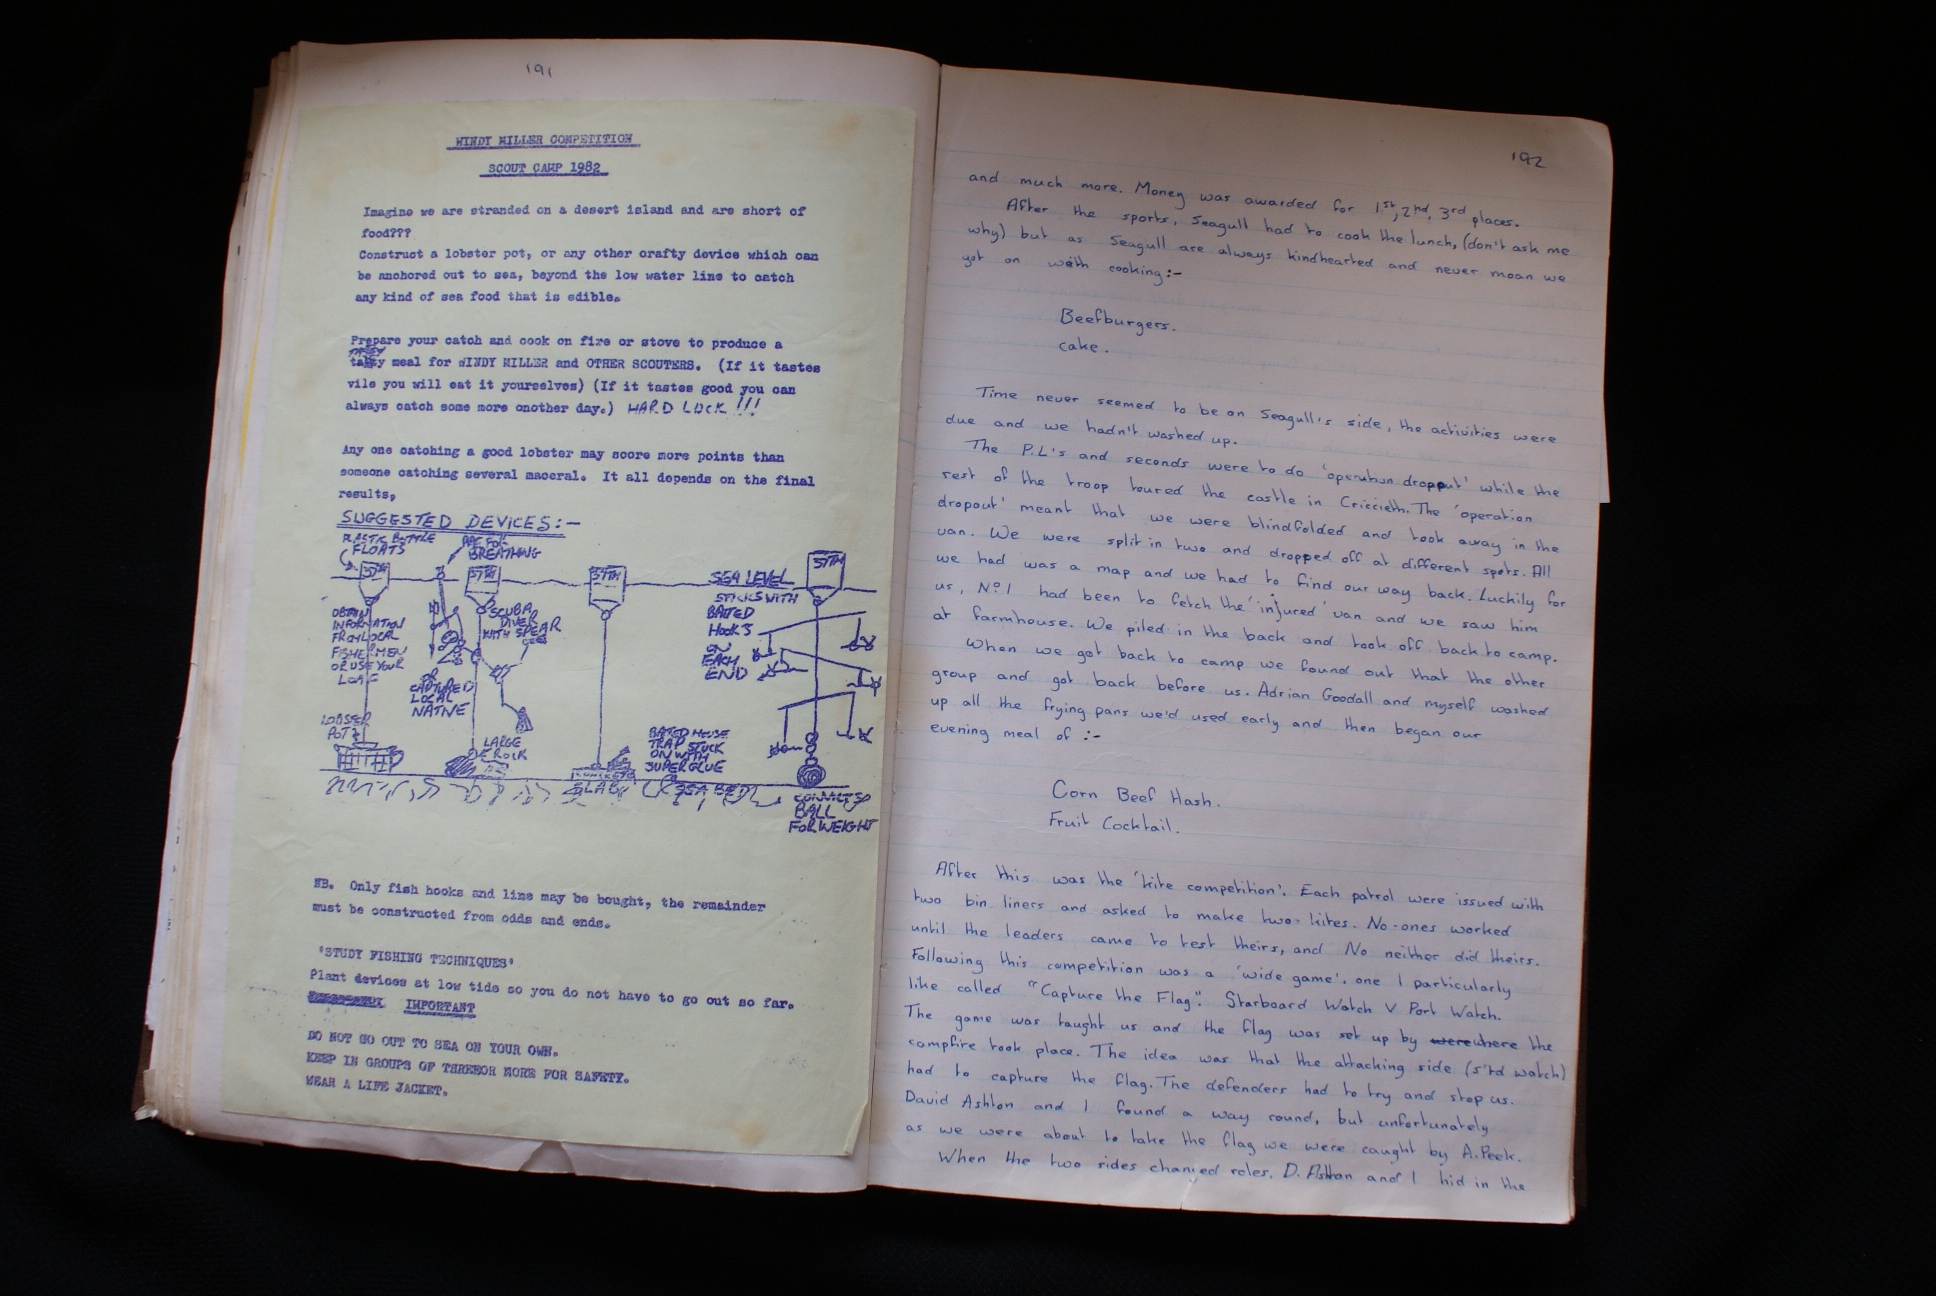 191
WINDY MILLER COMPETITION
SCOUT CAMP 1982
Imagine we are stranded on a desert island and are short of
food???
Construct a lobster pot, or any other crafty device which can
be anchored out to sea, beyond the low water line to catch
any kind of sea food that is edible.
Prepare your catch and cook on fire or stove to produce a
tasty meal for WINDY MILLER and OTHER SCOUTERS. (If it tastes
vile you will eat it yourselves) (If it tastes good you can
always catch some more onother day.) HARD LUCK !!!
Any one catching a good lobster may score more points than
someone catching several maceral. It all depends on the final
results,
SUGGESTED DEVICES:-
PLASTIC BOTTLE
FLOATS
PIPE FOR
BREATHING
37TH
37TH
37TH
37TH
SEA LEVEL
OBTAIN
INFORMATION
FROM LOCAL
FISHERMEN
OR USE YOUR
LOAF
SCUBA
DIVER
WITH SPEAR
OR
CAPTURED
LOCAL
NATIVE
STICKS WITH
BAITED
HOOKS
ON
EACH
END
LOBSTER
POT
LARGE
ROCK
CONCRETE
SLAB
BATED MOUSE
TRAP STUCK
ON WITH
SUPERGLUE
SEA BED
BALL
FOR WEIGHT
NB. Only fish hooks and line may be bought, the remainder
must be constructed from odds and ends.
'STUDY FISHING TECHNIQUES'
Plant devices at low tide so you do not have to go out so far.
IMPORTANT
DO NOT GO OUT TO SEA ON YOUR OWN.
KEEP IN GROUPS OF THREEOR MORE FOR SAFETY.
WEAR A LIFE JACKET.
192
and much more. Money was awarded for 1st, 2nd, 3rd places.
After the sports, Seagull had to cook the lunch, (don't ask me
why) but as Seagull are always kindhearted and never moan we
got on with cooking:-
Beefburgers.
cake.
Time never seemed to be on Seagull's side, the activities were
due and we hadn't washed up.
The P.L's and seconds were to do 'operation dropout' while the
rest of the troop toured the castle in Criccieth. The 'operation
dropout' meant that we were blindfolded and took away in the
van. We were split in two and dropped off at different spots. All
we had was a map and we had to find our way back. Luckily for
us, No 1 had been to fetch the 'injured' van and we saw him
at farmhouse. We piled in the back and took off back to camp.
When we got back to camp we found out that the other
group and got back before us. Adrian Goodall and myself washed
up all the frying pans we'd used early and then began our
evening meal of :-
Corn Beef Hash.
Fruit Cocktail.
After this was the 'kite competition'. Each patrol were issued with
two bin liners and asked to make two kites. No-ones worked
until the leaders came to test theirs, and No neither did theirs.
Following this competition was a 'wide game', one I particularly
like called "Capture the Flag". Starboard Watch V Port Watch.
The game was taught us and the flag was set up by were where the
campfire took place. The idea was that the attacking side (s'td watch)
had to capture the flag. The defenders had to try and stop us.
David Ashton and I found a way round, but unfortunately
as we were about to take the flag we were caught by A. Peek.
When the two sides changed roles, D. Ashton and I hid in the